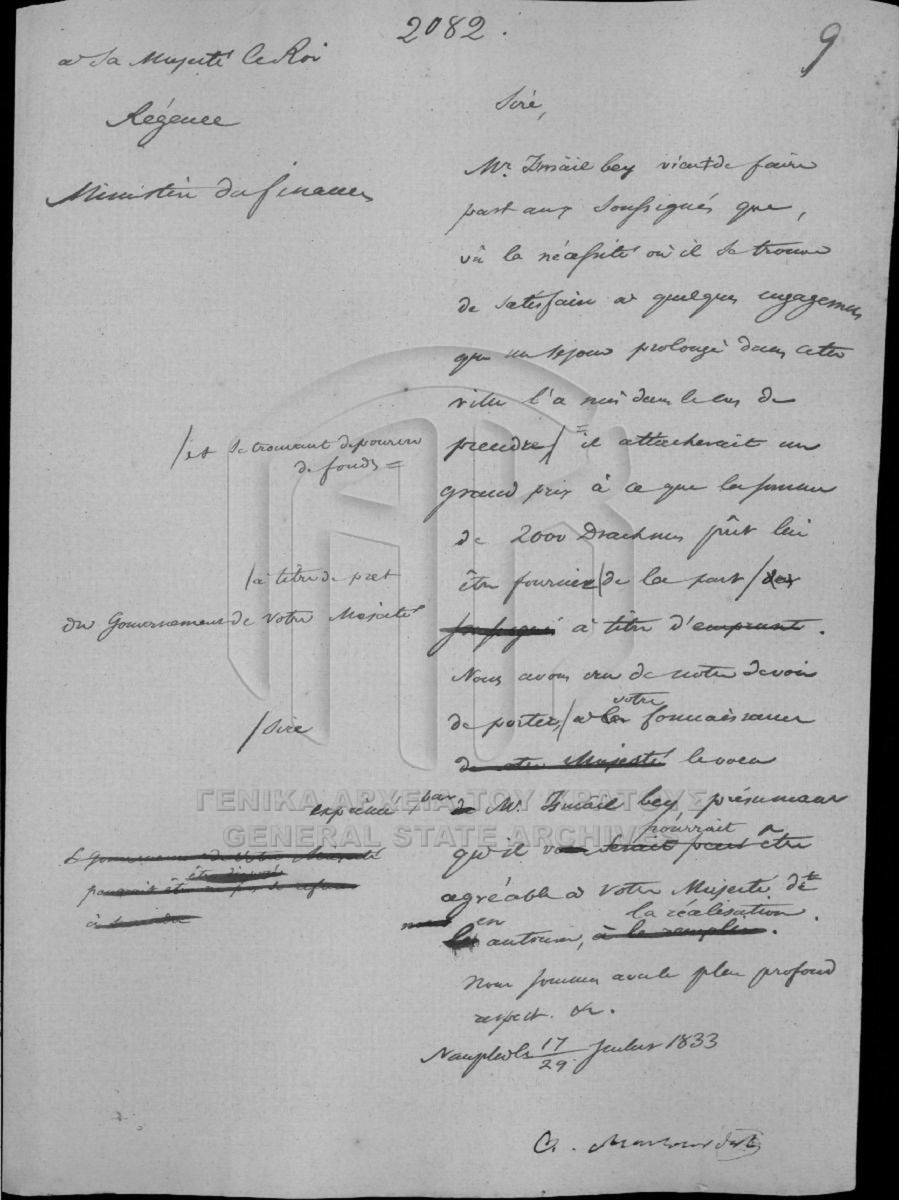 2082.
9
a Sa Majesté le Roi
Régence
Ministère des finances
Sire,
Mr. Ismaïl bey vient de faire
part aux soussignés que,
vû la nécessité où il se trouve
de satisfaire a quelques engagemens
que un sejour prolongé dans cette
ville l'a mis dans le cas de
/et se trouvant depourvu
de fonds =
prendre/ = il attacherait un
grand prix à ce que la somme
de 2000 Drachmes fût lui
/à titre de pret
être fournie/de la part/des
du Gouvernement de Votre Majesté
soussignés à titre d'emprunt.
Nous avons cru de notre devoir
votre
/Sire
de porter,/a la connaissance
de votre Majesté le voeu
exprimé par
de Mr. Ismail bey présumant
pourrait
qu'il être
Le Gouvernement de Votre Majesté
agréable a Votre Majesté d'
en la réalisation.
autoriser, à le remplir.
Nous sommes avec le plus profond
respect. &c.
Nauplie le 17/29 Juillet 1833